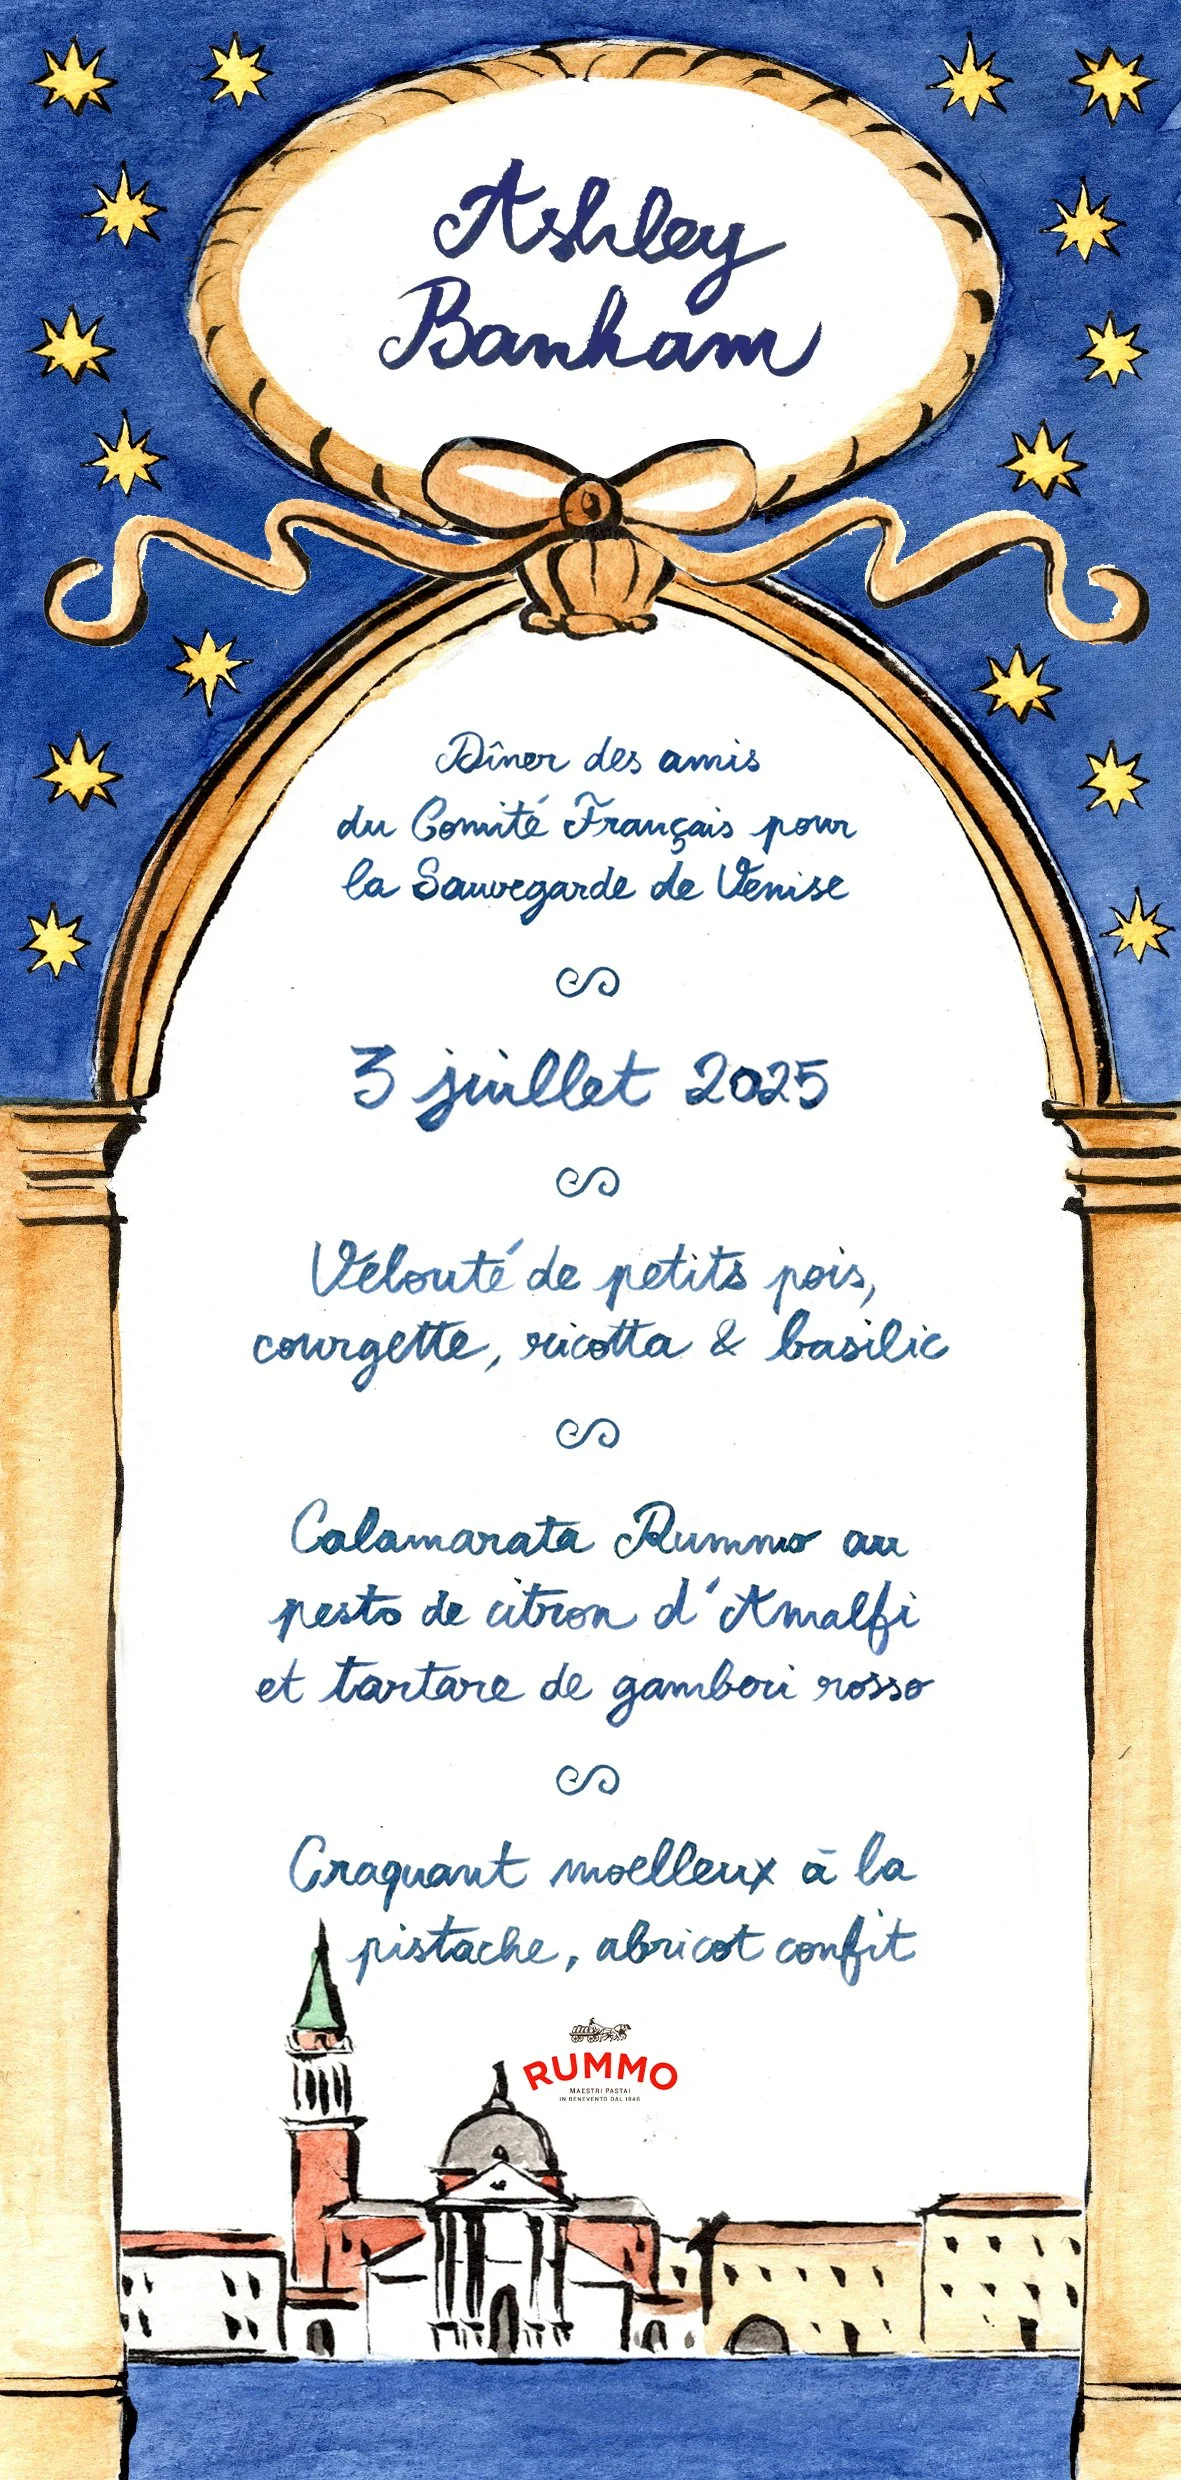 Ashley
Banham
Dîner des amis
du Comité Français pour
la Sauvegarde de Venise
3 juillet 2025
Velouté de petits pois,
courgette, ricotta & basilic
Calamarata Rummo au
pesto de citron d'Amalfi
et tartare de gamberi rosso
Craquant moelleux à la
pistache, abricot confit
RUMMO
MAESTRI PASTAI
IN BENEVENTO DAL 1846